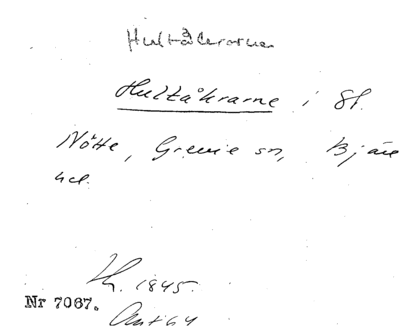 Hultåkrarna
Hultåkrarne i St.
Nötte, Grevie sn, Bjäre
hd.
Lh. 1845.
Nr 7067.